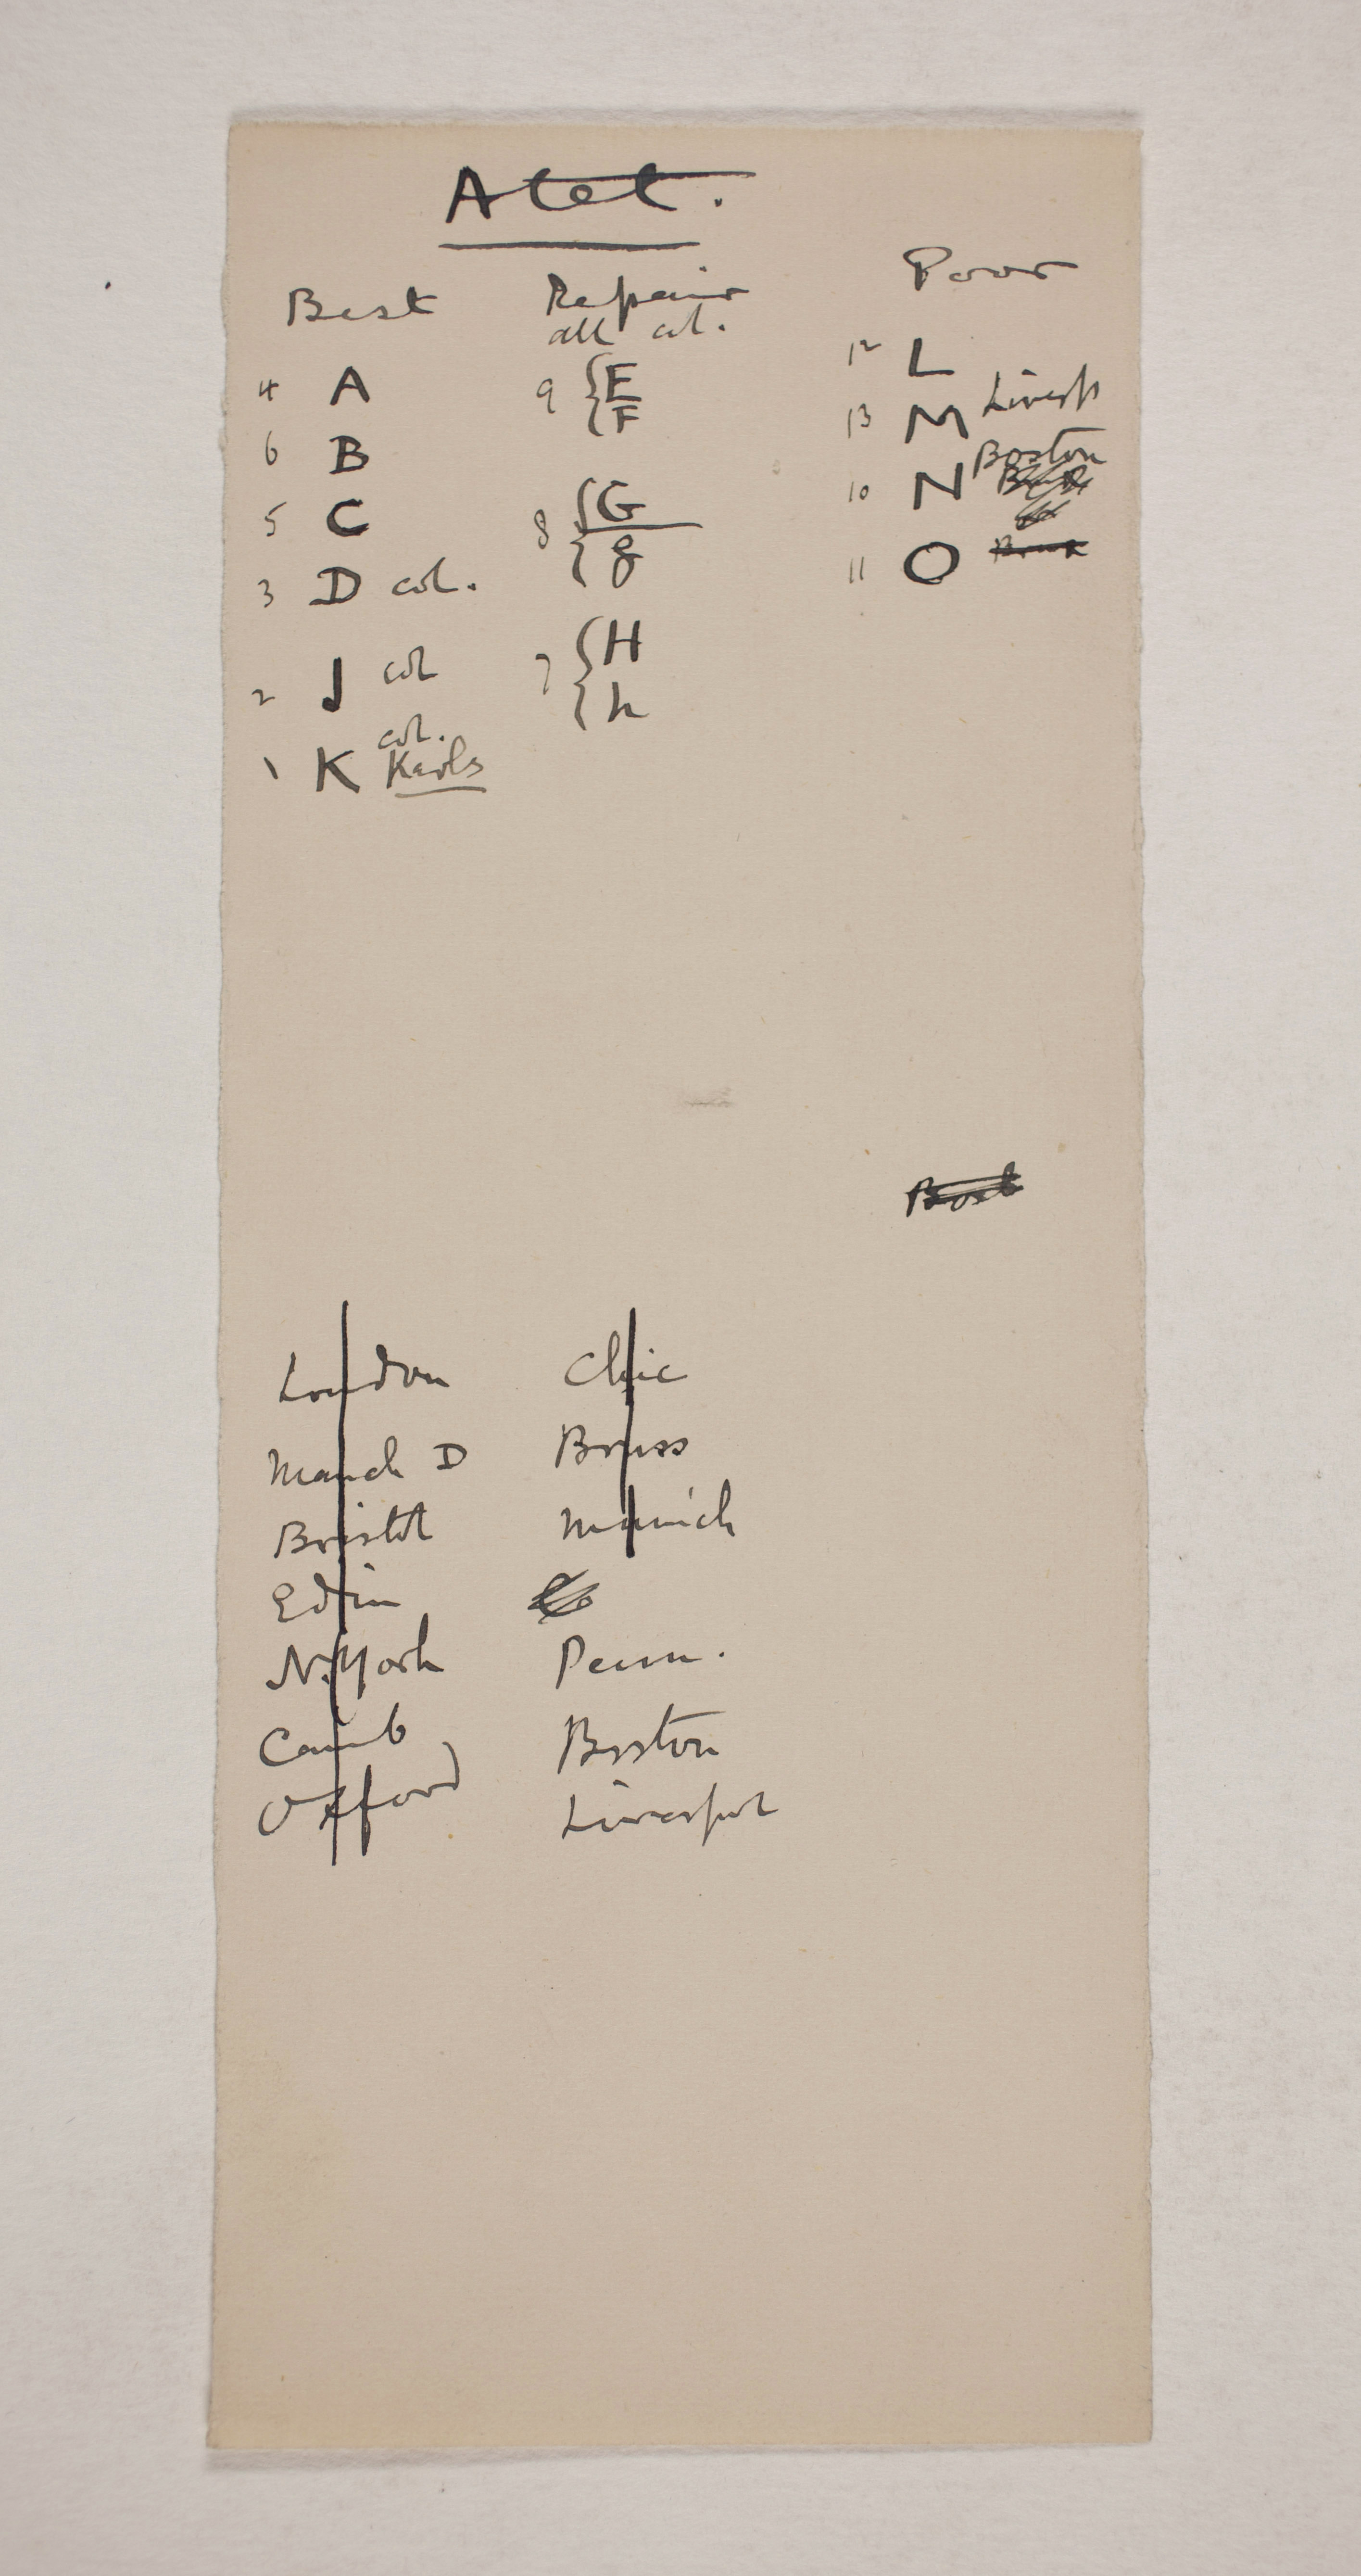 Atet.
Best
4 A
6 B
5 C
3 D col.
2 J col
col.
1 K Karls
Repair
all col.
9 { E
F
8 { G
g
7 { H
h
Poor
12 L
13 M Liverp
Boston
10 N
11 O
Bost
London
Manch D
Bristol
Edin
N.York
Camb
Oxford
Chic
Bruss
Munich
Penn.
Boston
Liverpool